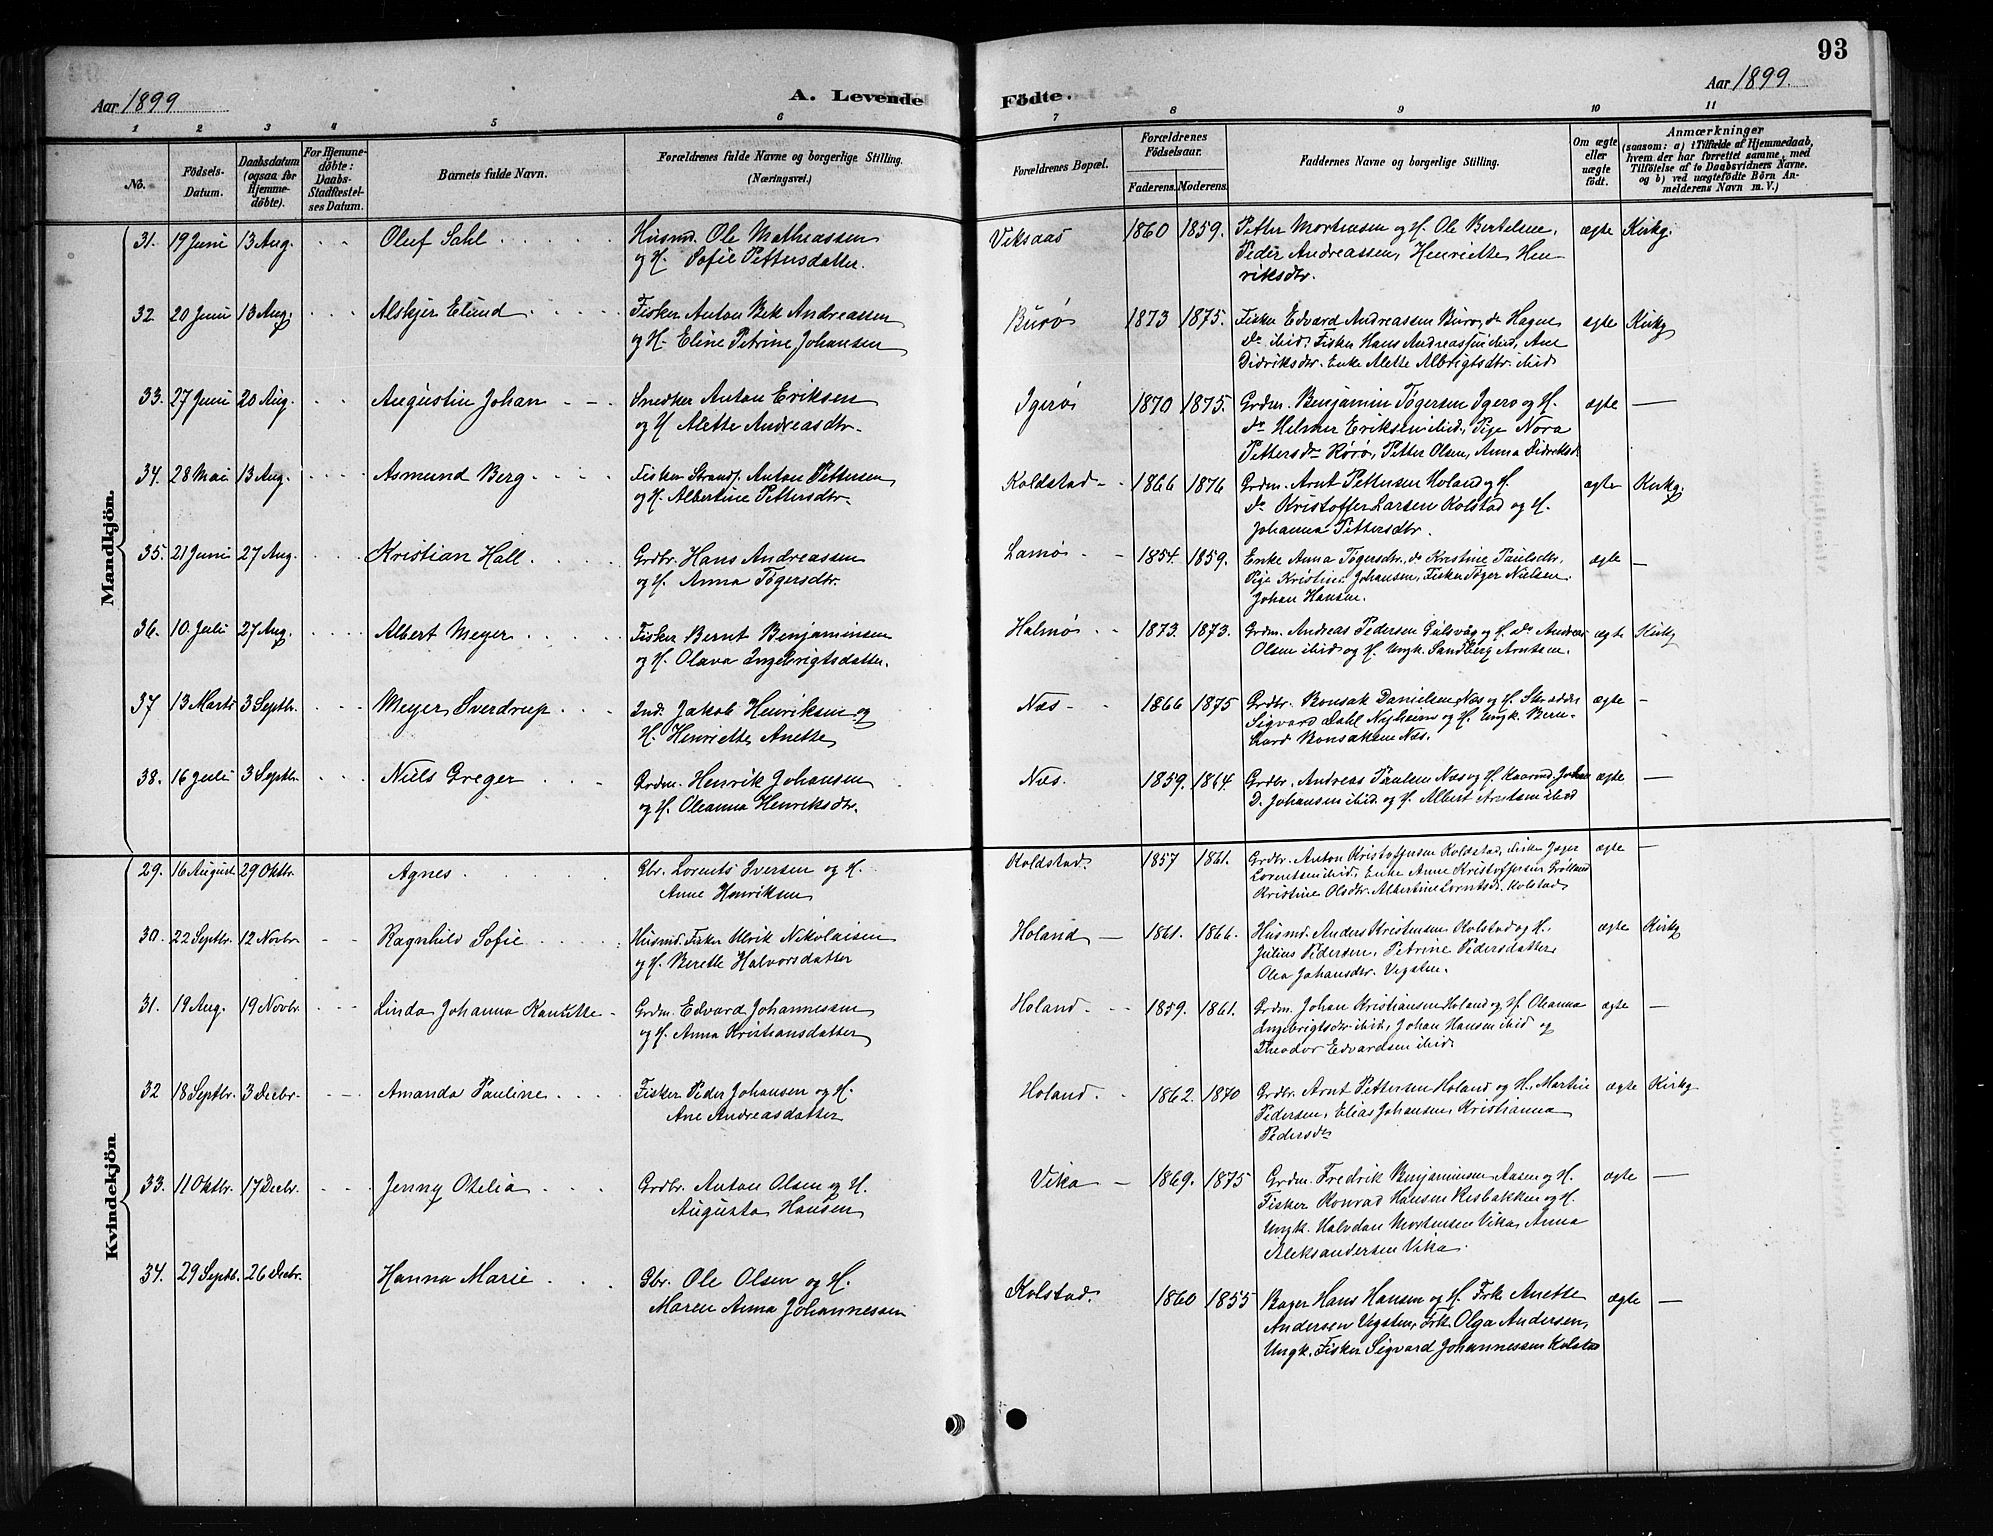 93
Aar 1899
A. Levende Födte.
Aar 1899.
1 2 3 4 5 6 7 8 9 10 11
No.
Födsels-Datum.
Daabsdatum (ogsaa for Hjemme-döbte).
For Hjemme-döbte: Daabs-Stadfæstel-ses Datum.
Barnets fulde Navn.
Forældrenes fulde Navne og borgerlige Stilling. (Næringsvei.)
Forældrenes Bopæl.
Forældrenes Födselsaar.
Faderens. Moderens.
Faddernes Navne og borgerlige Stilling.
Om ægte eller uægte födt.
Anmærkninger
(saasom: a) i Tilfælde af Hjemmedaab, hvem der har forrettet samme, med Tilföielse af to Daabsvidners Navne. og b) ved uægtefödte Börn An-melderens Navn m. V.)
Mandkjön.
31. 19 Juni 13 Aug. Oluf Dahl Husmd. Ole Matheassen
og H. Sofie Pettersdatter.
Viksaas 1860 1859. Petter Mortensen og H. Ole Bertelsen,
Peder Andreassen, Henriette Hen
riksdtr.
ægte Kirkg.
32. 20 Juni 13 Aug. Alskjer Elund Fisker Anton Bek Andreassen
og H. Eline Petrine Johansen
Burø 1873 1875. Fisker Edvard Andreassen Burø, do Hagen
do ibid, Fisker Hans Andreassen ibid, Ane
Didriksdtr. Enke Alette Albrigtsdtr. ibid
ægte Kirkg
33. 27 Juni 20 Aug. Augustin Johan Snedker Anton Eriksen
og H Alette Andreasdtr.
Igerø 1870 1875. Grdm. Benjamin Tøgersen Igerø og H.
do Helmer Eriksen ibid, Pige Nora
Pettersdr Rørø, Petter Olsen, Anna Didriksd.
ægte —
34. 28 Mai 13 Aug. Asmund Berg Fisker Strands. Anton Pettersen
og H. Albertine Pettersdtr.
Koldstad 1866 1876 Grdm. Arnt Pettersen Holand og H.
do Kristoffer Larsen Kolstad og H.
Johanna Pettersdtr.
ægte Kirkg
35. 21 Juni 27 Aug. Kristian Hall Grdbr. Hans Andreassen
og H. Anna Tøgersdtr.
Lamø 1854. 1859. Enke Anna Tøgersdtr, do Kristine Paulsdtr,
Pige Kristine Johansen, Fisker Tøger Nielsen
Johan Hansen.
ægte —
36. 10. Juli 27 Aug. Albert Meyer Fisker Bernt Benjaminsen
og H. Olava Ingebrigtsdatter.
Halmø 1873. 1873. Grdm. Andreas Pedersen Gulsvåg og H. do Andreas
Olsen ibid og H. Ungk. Sandberg Arntsen.
ægte Kirkg
37 13 Marts 3 Septbr. Meyer Sverdrup Ind. Jakob Henriksen og
H. Henriette Anette
Næs 1866 1875 Grdbr. Bonsak Danielsen Næs og H. Skrædder
Sigvard Dahl Nyheim og H. Ungk. Bern
hard Bonsaksen Næs.
ægte —
38. 16 Juli 3 Septbr. Nils Greger Grdm. Henrik Johansen
og H. Oleanna Henriksdtr.
Næs. 1859. 1864. Grdbr. Andreas Paulsen Næs og H. Kaarmd. Johan
D. Johansen ibid og H. Albert Arntsen ibid
ægte —
Kvindekjön
29. 16 August 29 Oktbr. Agnes Gbr. Lorents Iversen og H.
Anne Henriksen
Koldstad 1857 1861. Grdbr. Anton Kristoffersen Koldstad, Fisker Jøger
Lorentsen ibid, Enke Anne Kristoffersen Grøttland
Kristine Olsdtr. Albertine Lorntsd. Kolstad
ægte —
30. 22 Septbr. 12 Novbr Ragnhild Sofie Husmd. Fisker Ulrik Nikolaisen
og H. Berette Halvorsdatter
Holand 1861. 1866. Husmd. Anders Kristensen Kolstad og H,
Julius Pedersen, Petrine Pedersdatter
Olea Johansdtr. Vegsten.
ægte Kirkg
31. 19 Aug. 19 Novbr. Linda Johanna Kanutte Grdm. Edvard Johannessen
og H. Anna Kristiansdatter
Holand 1859. 1861. Grdm. Johan Kristiansen Holand og H. Oleanna
Ingebrigtsdtr ibid, Johan Hansen ibid og
Theodor Edvardsen ibid
ægte —
32 18 Septbr. 3 Decbr. Amanda Pauline Fisker Peder Johansen og H.
Ane Andreasdatter
Holand. 1862. 1870 Grdbr. Arnt Pettersen Holand og H, Martin
Pedersen, Elias Johansen, Kristianna
Pedersdr
ægte Kirkg
33. 11 Oktbr. 17 Decbr. Jenny Otelia Grdbr. Anton Olsen og H.
Augusta Hansen
Vika 1869. 1875 Grdm. Fredrik Benjaminsen Aasen og H.
Fisker Konrad Hansen Resbakken og H.
Ungk. Halvdan Mortensen Vika, Anna
Aleksandersen Vika.
ægte —
34. 29 Septb. 26 Decbr. Hanna Marie Gbr. Ole Olsen og H.
Maren Anna Johannessen
Kolstad. 1860 1855 Bager Hans Hansen og H. Frk Anette
Andersen Vegsten, Frk. Olga Andersen,
Ungk. Fisker Sigvard Johannessen Kolstad
ægte —